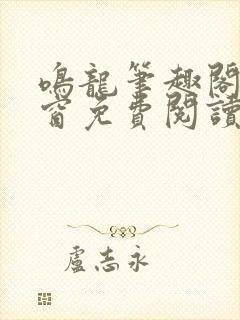 鳴龍筆趣閣
窗免費閱讀
盧志永